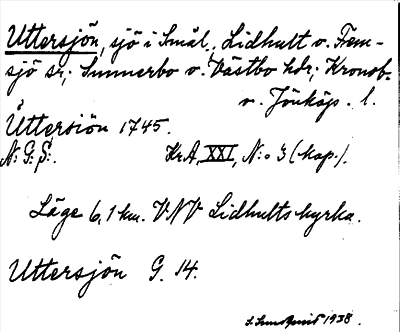 Uttersjön, sjö i Smål., Lidhult o. Fem-
sjö sr; Sunnerbo o. Västbo hdr; Kronob.
o. Jönköp. l.
Åttersiön 1745.
N: G: S:. KrA, XXI, N:o 3 (kap.).
Läge 6,1 km. VNV Lidhults kyrka.
Uttersjön G. 14.
1938.